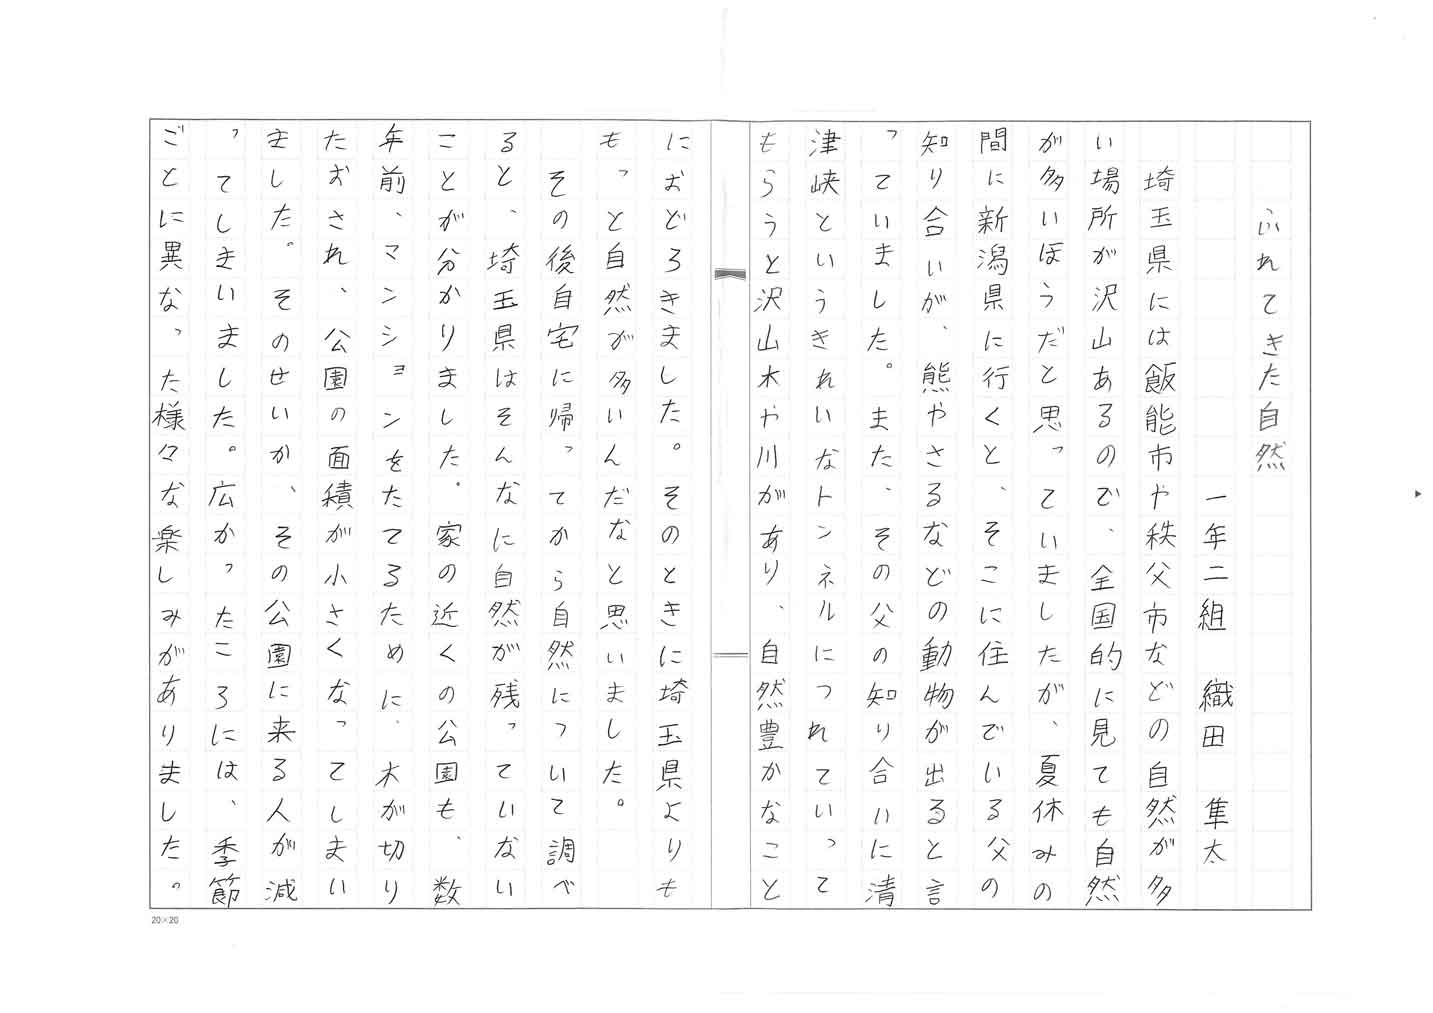 ふれてきた自然
一年二組 織田 隼太
埼玉県には飯能市や秩父市などの自然が多
い場所が沢山あるので、全国的に見ても自然
が多いほうだと思っていましたが、夏休みの
間に新潟県に行くと、そこに住んでいる父の
知り合いが、熊やさるなどの動物が出ると言
っていました。また、その父の知り合いに清
津峡といううきれいなトンネルにつれていって
もらうと沢山木や川があり、自然豊かなこと
におどろきました。そのときに埼玉県よりも
もっと自然が多いんだなと思いました。
その後自宅に帰ってから自然について調べ
ると、埼玉県はそんなに自然が残っていない
ことが分かりました。家の近くの公園も、数
年前、マンションをたてるために、木が切り
たおされ、公園の面積が小さくなってしまい
ました。そのせいか、その公園に来る人が減
ってしまいました。広かったころには、季節
ごとに異なった様々な楽しみがありました。
20×20